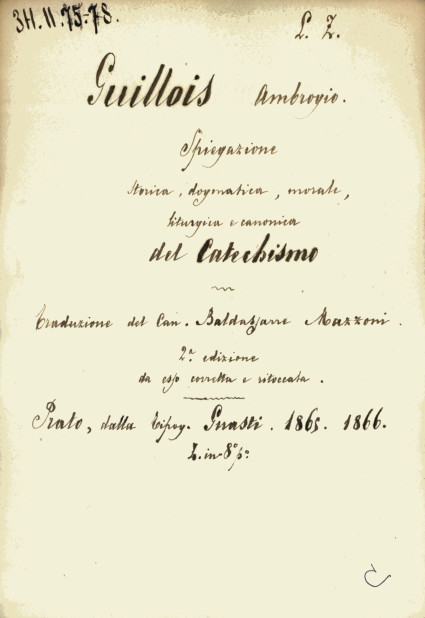 3H.II.75-78.
L. Z.
Guillois Ambrogio.
Spiegazione
storica, dogmatica, morale,
liturgica e canonica
del Catechismo
Traduzione del Can. Baldassarre Mazzoni.
2ª edizione
da esso corretta e ritoccata.
Prato, dalla tipog. Guasti. 1865. 1866.
in 8° pº